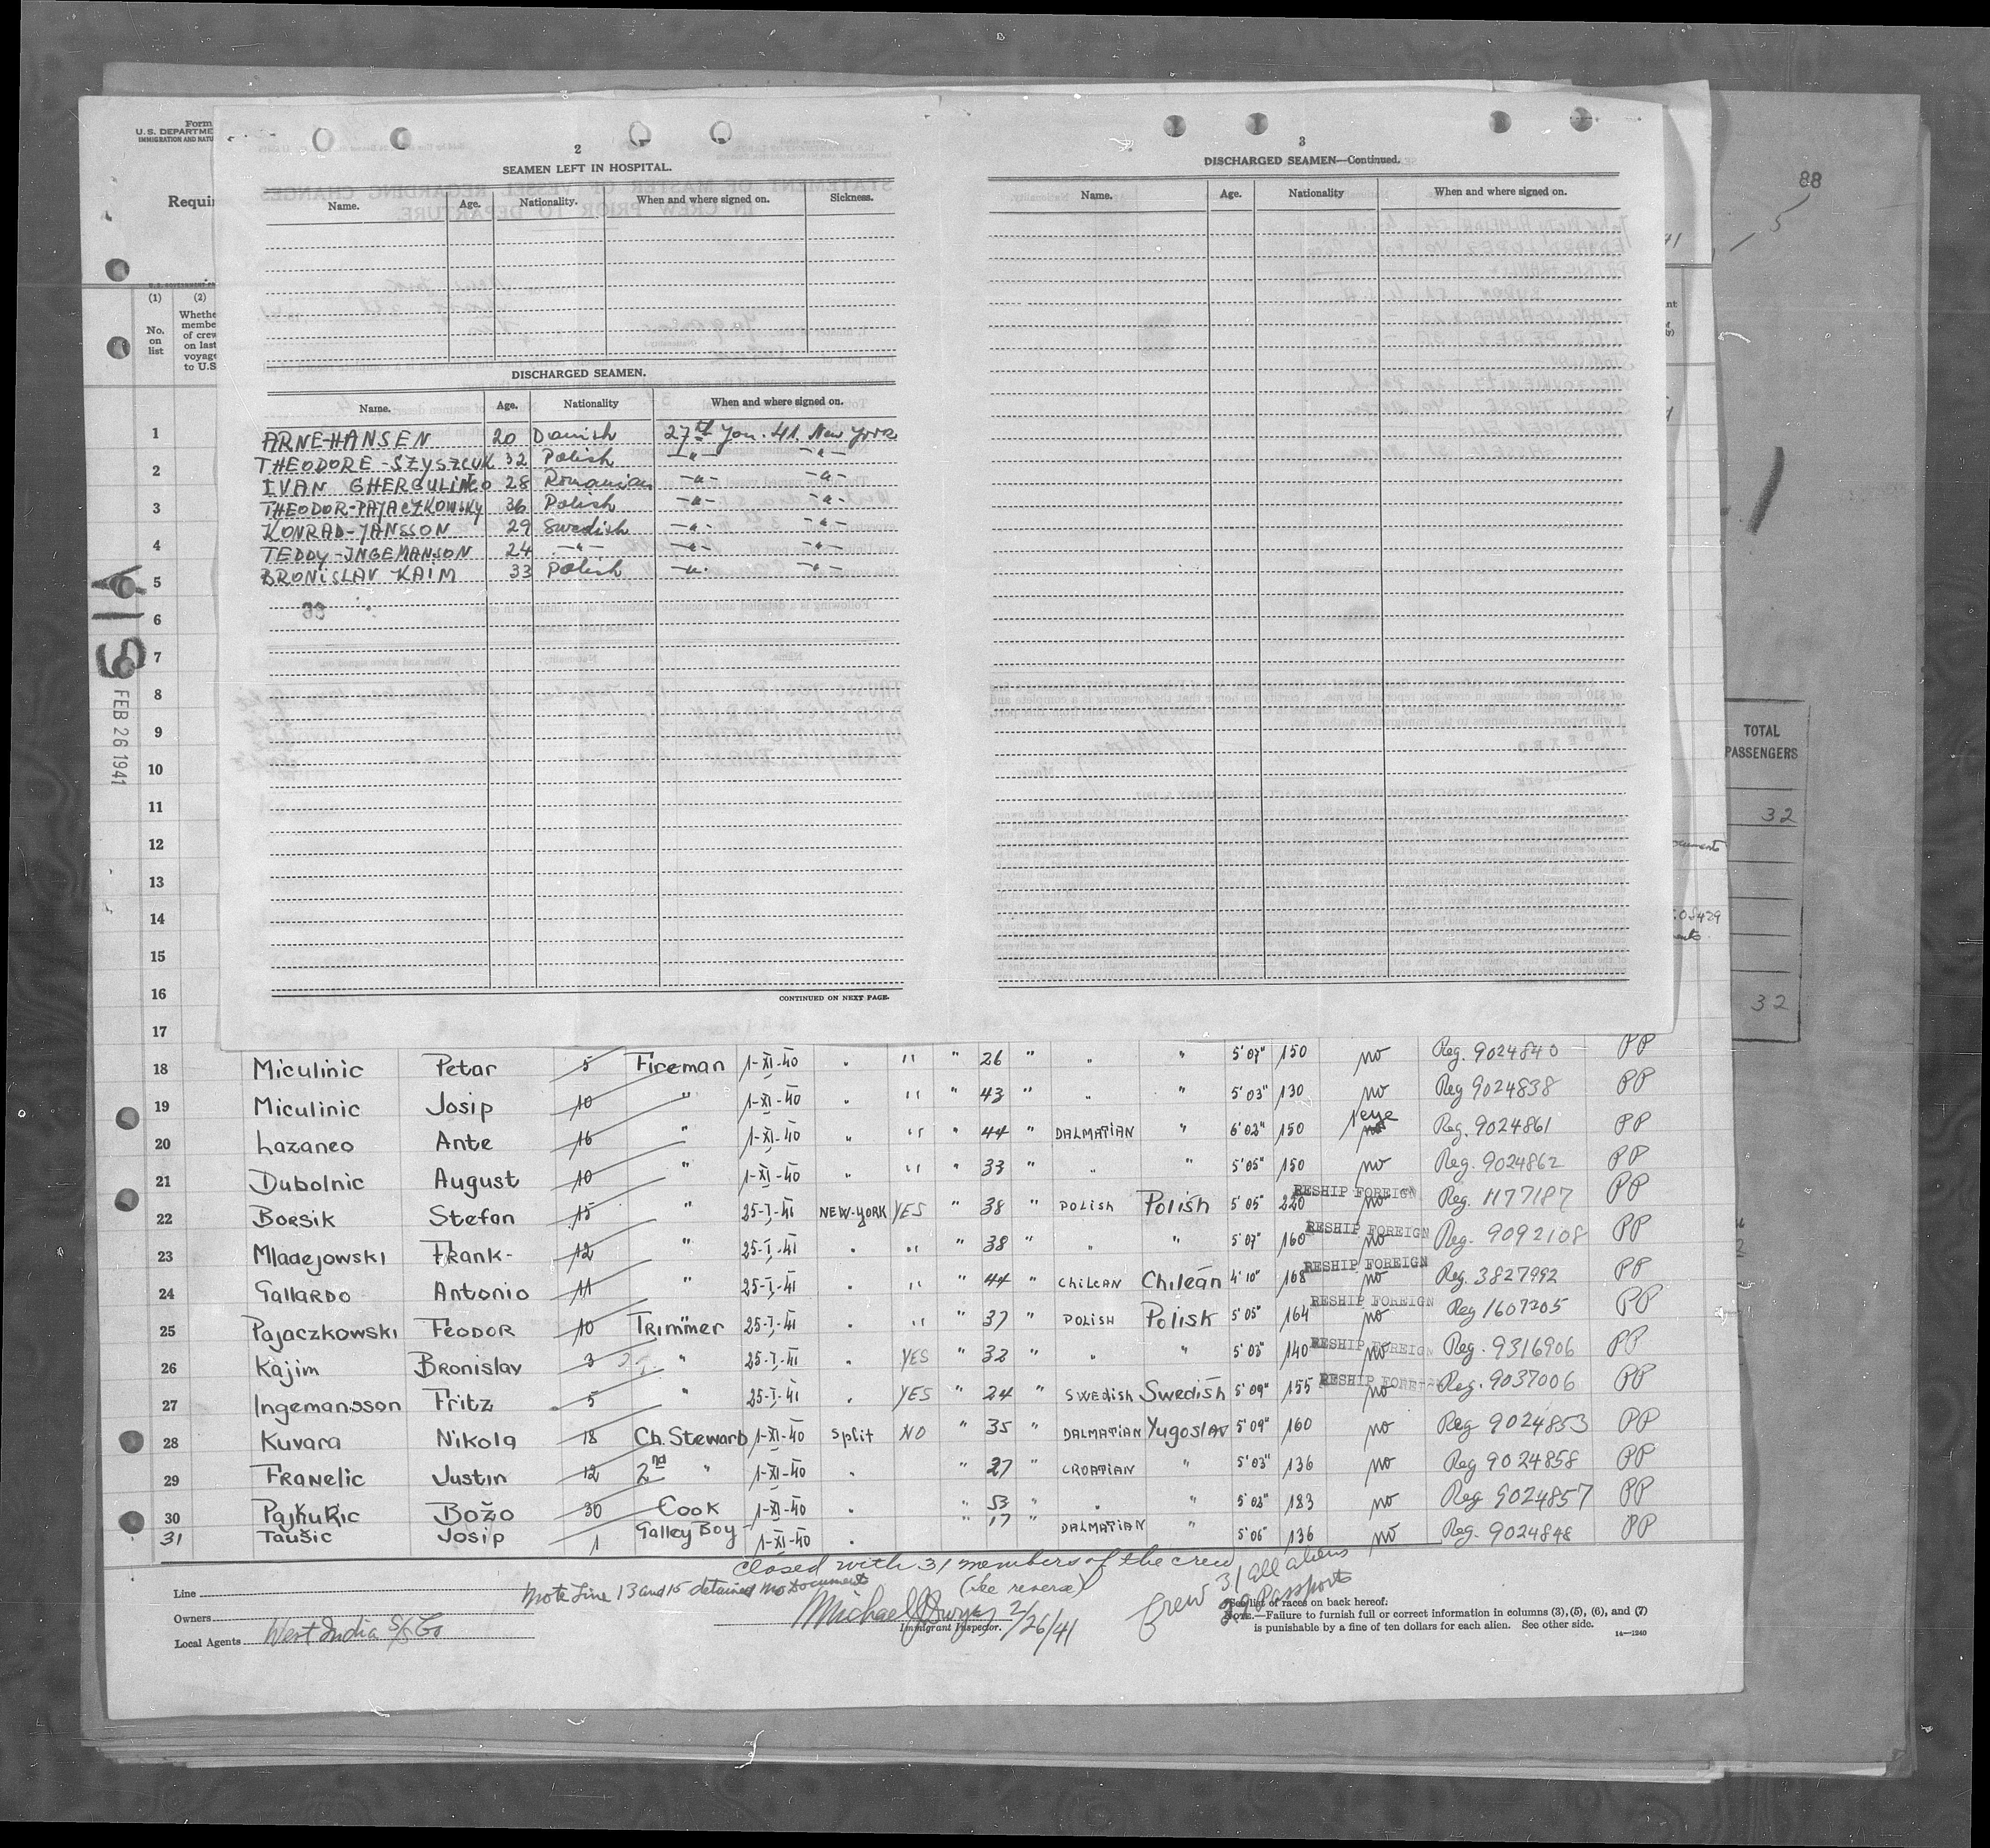 88
5
Form
U.S. DEPARTME
IMMIGRATION AND NATU
Requir
(1) (2)
No. on list
Whethe membe of crew on last voyage to U.S
2
SEAMEN LEFT IN HOSPITAL.
Name. Age. Nationality. When and where signed on. Sickness.
DISCHARGED SEAMEN.
Name. Age. Nationality When and where signed on.
ARNE-HANSEN 20 Danish 27th Jan. 41. New York
THEODORE-SZYSZCUK 32 Polish -"- -"-
IVAN GHERGULINCO 28 Romanian -"- -"-
THEODOR-PAJACZKOWSKY 36 Polish -"- -"-
KONRAD-JANSSON 29 Swedish -"- -"-
TEDDY-INGEMANSON 24 -"- -"- -"-
BRONISLAV KAIM 33 Polish -"- -"-
CONTINUED ON NEXT PAGE.
3
DISCHARGED SEAMEN—Continued.
Name. Age. Nationality When and where signed on.
TOTAL
PASSENGERS
32
32
FEB 26 1941
1
2
3
4
5
6
7
8
9
10
11
12
13
14
15
16
17
18 Miculinic Petar 5 Fireman 1-XI-40 " " " 26 " " " 5'07" 150 no Reg. 9024840 PP
19 Miculinic Josip 10 " 1-XI-40 " " " 43 " " " 5'03" 130 no Reg 9024838 PP
20 Lazaneo Ante 16 " 1-XI-40 " " " 44 " DALMATIAN " 6'02" 150 1 eye no Reg. 9024861 PP
21 Dubolnic August 10 " 1-XI-40 " " " 33 " " " 5'05" 150 no Reg. 9024862 PP
22 Borsik Stefan 15 " 25-I-41 NEW-YORK YES " 38 " POLISH Polish 5'05" 220 RESHIP FOREIGN no Reg. 1177187 PP
23 Mladejowski Frank- 12 " 25-I-41 " " " 38 " " " 5'07" 160 RESHIP FOREIGN no Reg. 9092108 PP
24 GALLARDO Antonio 11 " 25-I-41 " " " 44 " CHILEAN Chileán 4'10" 168 RESHIP FOREIGN no Reg. 3827992 PP
25 Pajaczkowski FEODOR 10 TRIMMER 25-I-41 " " " 37 " POLISH Polish 5'05" 164 RESHIP FOREIGN no Reg 1607205 PP
26 Kajim Bronislav 3 " 25-I-41 " YES " 32 " " " 5'03" 140 RESHIP FOREIGN no Reg. 9316906 PP
27 Ingemansson Fritz 5 " 25-I-41 " YES " 24 " SWEDISH Swedish 5'09" 155 RESHIP FOREIGN no Reg. 9037006 PP
28 Kuvara Nikola 18 Ch. Steward 1-XI-40 Split NO " 35 " DALMATIAN Yugoslav 5'09" 160 no Reg 9024853 PP
29 FRANELIC Justin 12 2nd " 1-XI-40 " " 27 " CROATIAN " 5'03" 136 no Reg 9024858 PP
30 Pajkuric Božo 30 COOK 1-XI-40 " " 53 " " " 5'08" 183 no Reg 9024857 PP
31 Taušic Josip 1 Galley Boy 1-XI-40 " " 17 " DALMATIAN " 5'06" 136 no Reg. 9024848 PP
Closed with 31 members of the crew
(see reverse)
Note Line 13 and 15 detained no Documents
Crew 31 all aliens
29 Passports
Line
Owners
Local Agents West India S/S Co
Michael J Dwyer 2/26/41
Immigrant Inspector.
See list of races on back hereof.
NOTE.—Failure to furnish full or correct information in columns (3), (5), (6), and (7)
is punishable by a fine of ten dollars for each alien. See other side.
14—1240